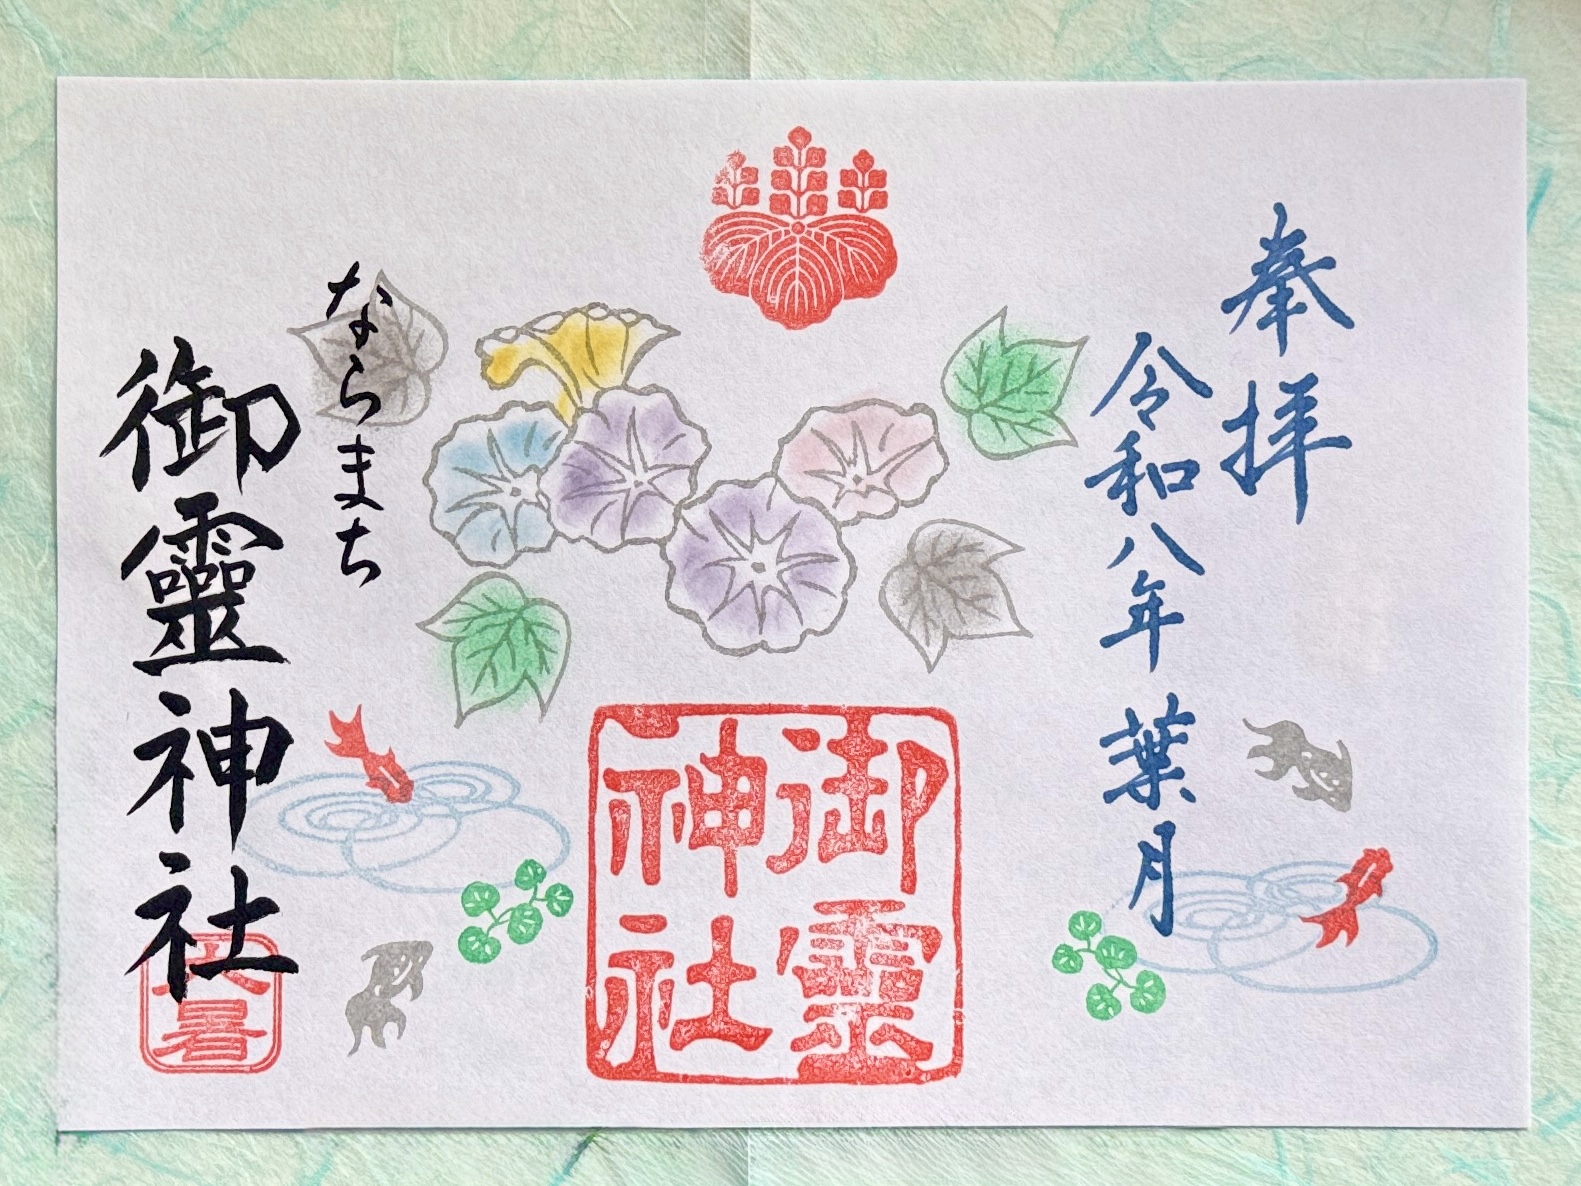 奉拝
令和八年 葉月
御靈
神社
ならまち
御靈神社
大暑